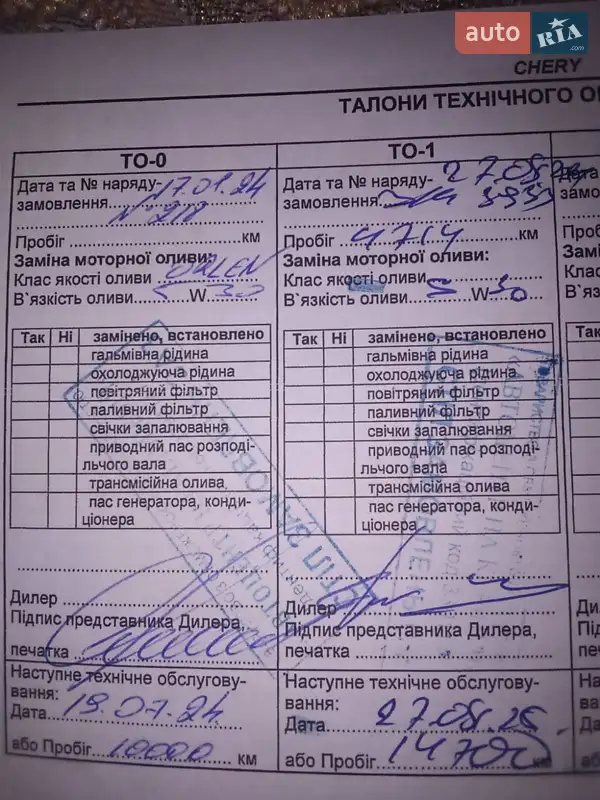 auto RIA .com
CHERY
ТАЛОНИ ТЕХНІЧНОГО О
ТО-0
Дата та № наряду-
замовлення 17.01.24
№ 218
Пробіг км
Заміна моторної оливи:
Клас якості оливи ORLEN
В`язкість оливи 5 W 30
Так Ні замінено, встановлено
гальмівна рідина
охолоджуюча рідина
повітряний фільтр
паливний фільтр
свічки запалювання
приводний пас розподі-
льчого вала
трансмісійна олива
пас генератора, конди-
ціонера
Дилер
Підпис представника Дилера,
печатка
Наступне технічне обслугову-
вання:
Дата 19.07.24
або Пробіг 10000 км
ТО-1
Дата та № наряду-
замовлення
Пробіг 4714 км
Заміна моторної оливи:
Клас якості оливи
В`язкість оливи 5 W 30
Так Ні замінено, встановлено
гальмівна рідина
охолоджуюча рідина
повітряний фільтр
паливний фільтр
свічки запалювання
приводний пас розподі-
льчого вала
трансмісійна олива
пас генератора, конди-
ціонера
Дилер
Підпис представника Дилера,
печатка
Наступне технічне обслугову-
вання:
Дата 27.08.25
або Пробіг 14700